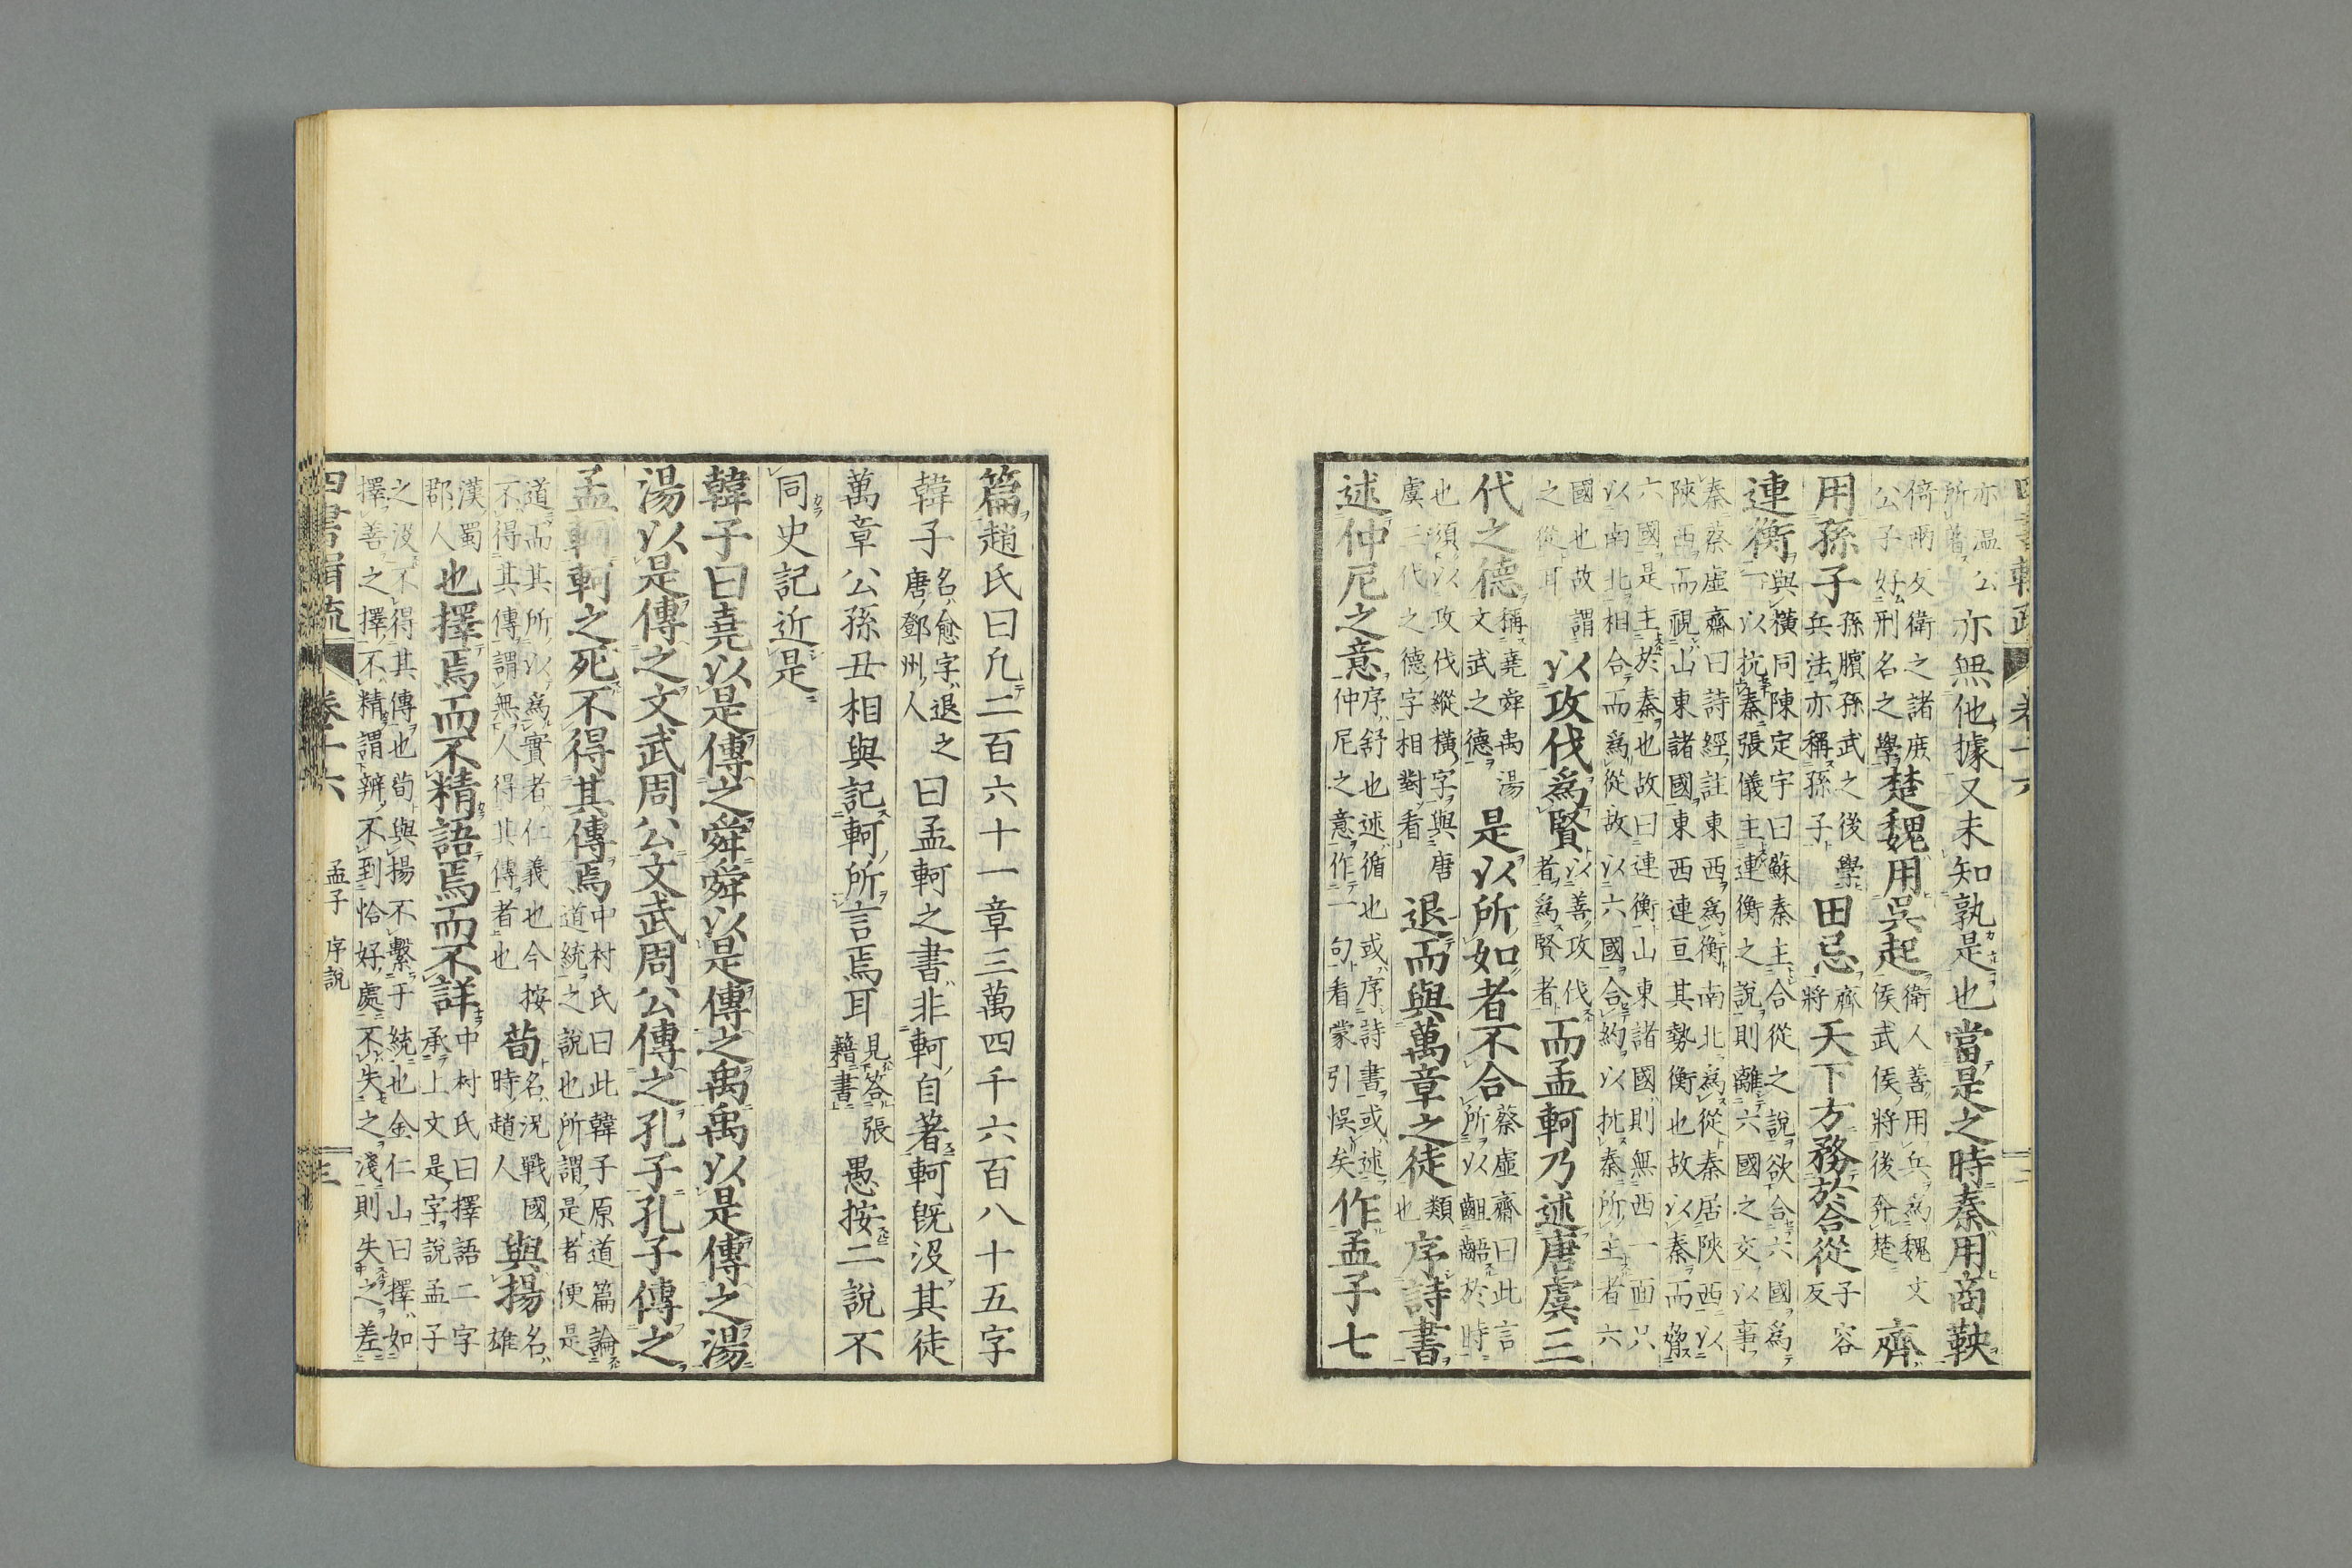 亦温公
所著
亦無他據又未知孰是也當是之時秦用商鞅
倚兩反衛之諸庶
公子好刑名之學
楚魏用吳起
衛人善用兵爲魏文
侯武侯將後奔楚
齊
用孫子
孫臏孫武之後學
兵法亦稱孫子
田忌
齊
將
天下方務於合從
子容
反
連衡
與橫同陳定宇曰蘇秦主合從之說欲合六國爲
一以抗秦張儀主連衡之說則離六國之交以事
秦蔡虛齋曰詩經註東西爲衡南北爲從秦居陝西以
陝西而視山東諸國東西連亘其勢衡也故以秦而
六國是主於秦也故曰連衡山東諸國則無西一面只
以南北相合而爲從故以六國合約以抗秦所主者六
國也故謂
之從耳
以攻伐爲賢
以善攻伐
者爲賢者
而孟軻乃述唐虞三
代之德
稱堯舜禹湯
文武之德
是以所如者不合
蔡虛齋曰此言
所以齟齬於時
也須以攻伐縱橫字與唐
虞三代之德字相對看
退而與萬章之徒
類
也
序詩書
述仲尼之意
序舒也述循也或序詩書或述
仲尼之意作一句看蒙引悞矣
作孟子七
篇趙氏曰凡二百六十一章三萬四千六百八十五字
韓子
名愈字退之
唐鄧州人
曰孟軻之書非軻自著軻既沒其徒
萬章公孫丑相與記軻所言焉耳
見答張
籍書
愚按二說不
同史記近是
韓子曰堯以是傳之舜舜以是傳之禹禹以是傳之湯
湯以是傳之文武周公文武周公傳之孔子孔子傳之
孟軻軻之死不得其傳焉
中村氏曰此韓子原道篇論
道統之說也所謂是者便是
道而其所以爲實者仁義也今按
不得其傳謂無人得其傳者也
荀
名況戰國
時趙人
與揚
名雄
漢蜀
郡人
也擇焉而不精語焉而不詳
中村氏曰擇語二字
承上文是字說孟子
之沒不得其傳也荀與揚不繫于統也金仁山曰擇如
擇善之擇不精謂辨不到恰好處不失之淺則失之差
四書輯疏
卷十六
孟子 序說
三